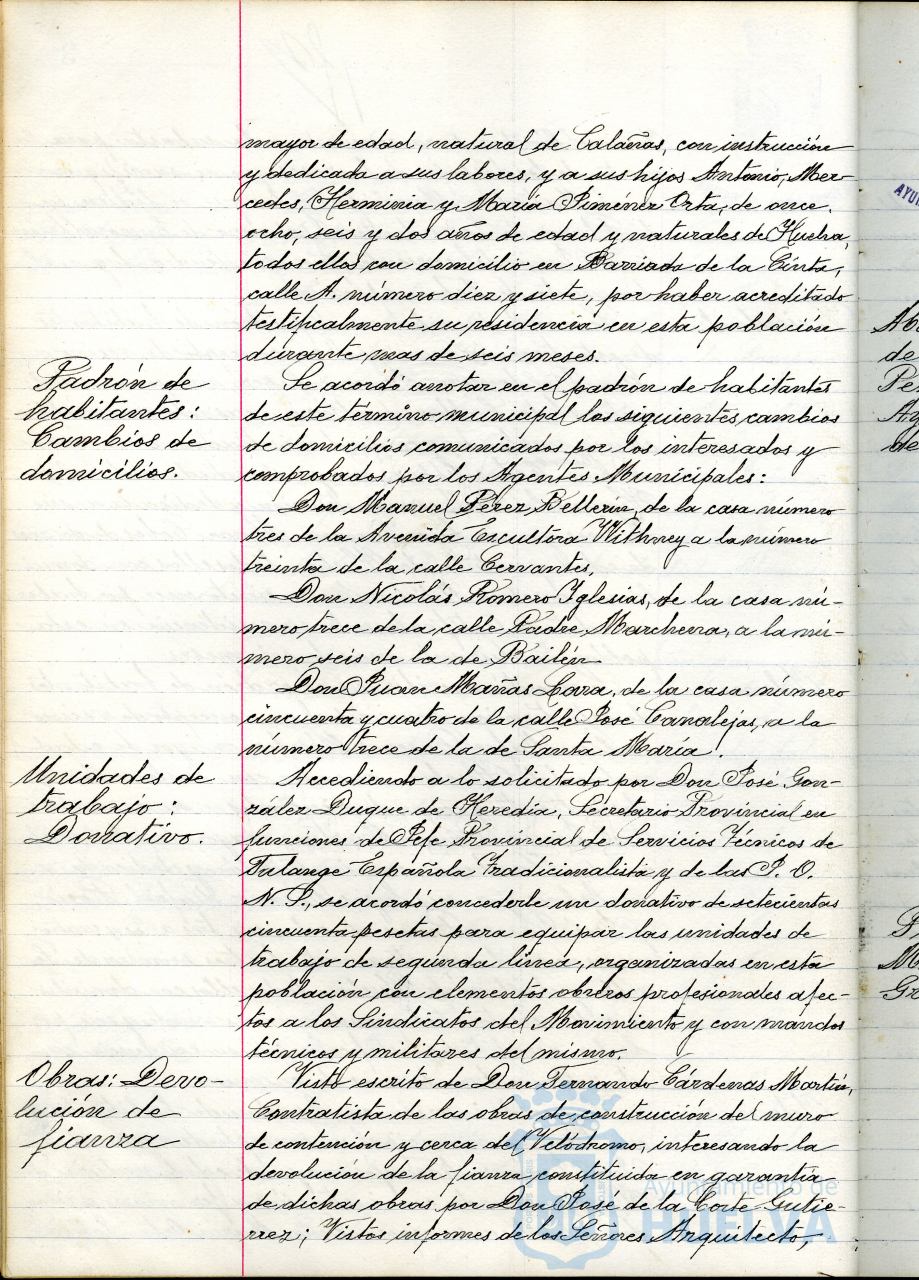 mayor de edad, natural de Calañas, con instrucción
y dedicada a sus labores, y a sus hijos Antonio, Mer-
cedes, Herminia y María Jiménez Orta, de once,
ocho, seis y dos años de edad y naturales de Huelva,
todos ellos con domicilio en Barriada de la Cinta,
calle A. número diez y siete, por haber acreditado
testificalmente su residencia en esta población
durante mas de seis meses.
Padrón de
habitantes:
Cambios de
domicilios.
Se acordó anotar en el padrón de habitantes
de este término municipal los siguientes cambios
de domicilios comunicados por los interesados y
comprobados por los Agentes Municipales:
Don Manuel Pérez Bellerín, de la casa número
tres de la Avenida Escultora Withney a la número
treinta de la calle Cervantes.
Don Nicolás Romero Iglesias, de la casa nú-
mero trece de la calle Padre Marchena, a la nú-
mero seis de la de Bailén
Don Juan Mañas Lara, de la casa número
cincuenta y cuatro de la calle José Canalejas, a la
número trece de la de Santa María.
Unidades de
trabajo:
Donativo.
Accediendo a lo solicitado por Don José Gon-
zález Duque de Heredia, Secretario Provincial en
funciones de Jefe Provincial de Servicios Técnicos de
Falange Española Tradicionalista y de las J. O.
N. S., se acordó concederle un donativo de setecientas
cincuenta pesetas para equipar las unidades de
trabajo de segunda linea, organizadas en esta
población con elementos obreros profesionales afec-
tos a los Sindicatos del Movimiento y con mandos
técnicos y militares del mismo.
Obras: Devo-
lución de
fianza
Visto escrito de Don Fernando Cárdenas Martín,
Contratista de las obras de construcción del muro
de contención y cerca del Velódromo, interesando la
devolución de la fianza constituida en garantía
de dichas obras por Don José de la Corte Gutié-
rrez; Vistos informes de los Señores Arquitecto,
Ayuntamiento de
HUELVA